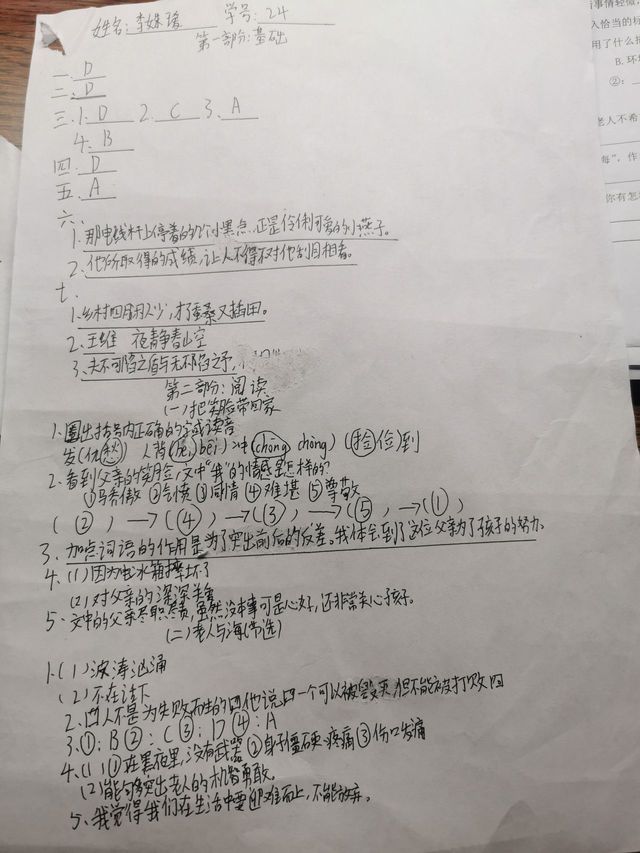 姓名:李姝瑶 学号:24
第一部分:基础
一.D
二.D
三.1.D 2.C 3.A
4.B
四.D
五.A
六、
1.那电线杆上停着的几个小黑点,正是伶俐可爱的小燕子。
2.他所取得的成绩,让人不得不对他刮目相看。
七、
1.乡村四月闲人少,才了蚕桑又插田。
2.王维 夜静春山空
3.夫不可陷之盾与无不陷之矛,
第二部分:阅读
(一)把笑脸带回家
1.圈出括号内正确的字或读音
发(忆 愁) 人背(bēi bèi)冲(chōng chòng)(捡 俭)到
2.看到父亲的笑脸,文中"我"的情感是怎样的?
①骄傲 ②气愤 ③同情 ④难堪 ⑤尊敬
(②)→(④)→(③)→(⑤)→(①)
3.加点词语的作用是为了突出前后的反差。我体会到了这位父亲为了孩子的努力。
4.(1)因为电冰箱摔坏了
(2)对父亲的深深关爱
5.文中的父亲尽职尽责,虽然没本事可是心好,还非常关心孩子。
(二)老人与海(节选)
1.(1)波涛汹涌
(2)不在话下
2.四人不是为失败而生的四他说四一个可以被毁灭但不能被打败四
3.①:B②:C③:D④:A
4.(1)①在黑夜里,没有武器②身子僵硬、疼痛③伤口发痛
(2)能够突出老人的机智勇敢。
5、我觉得我们在生活中要迎难而上,不能放弃。
B.环
②:
老人不希
你有怎